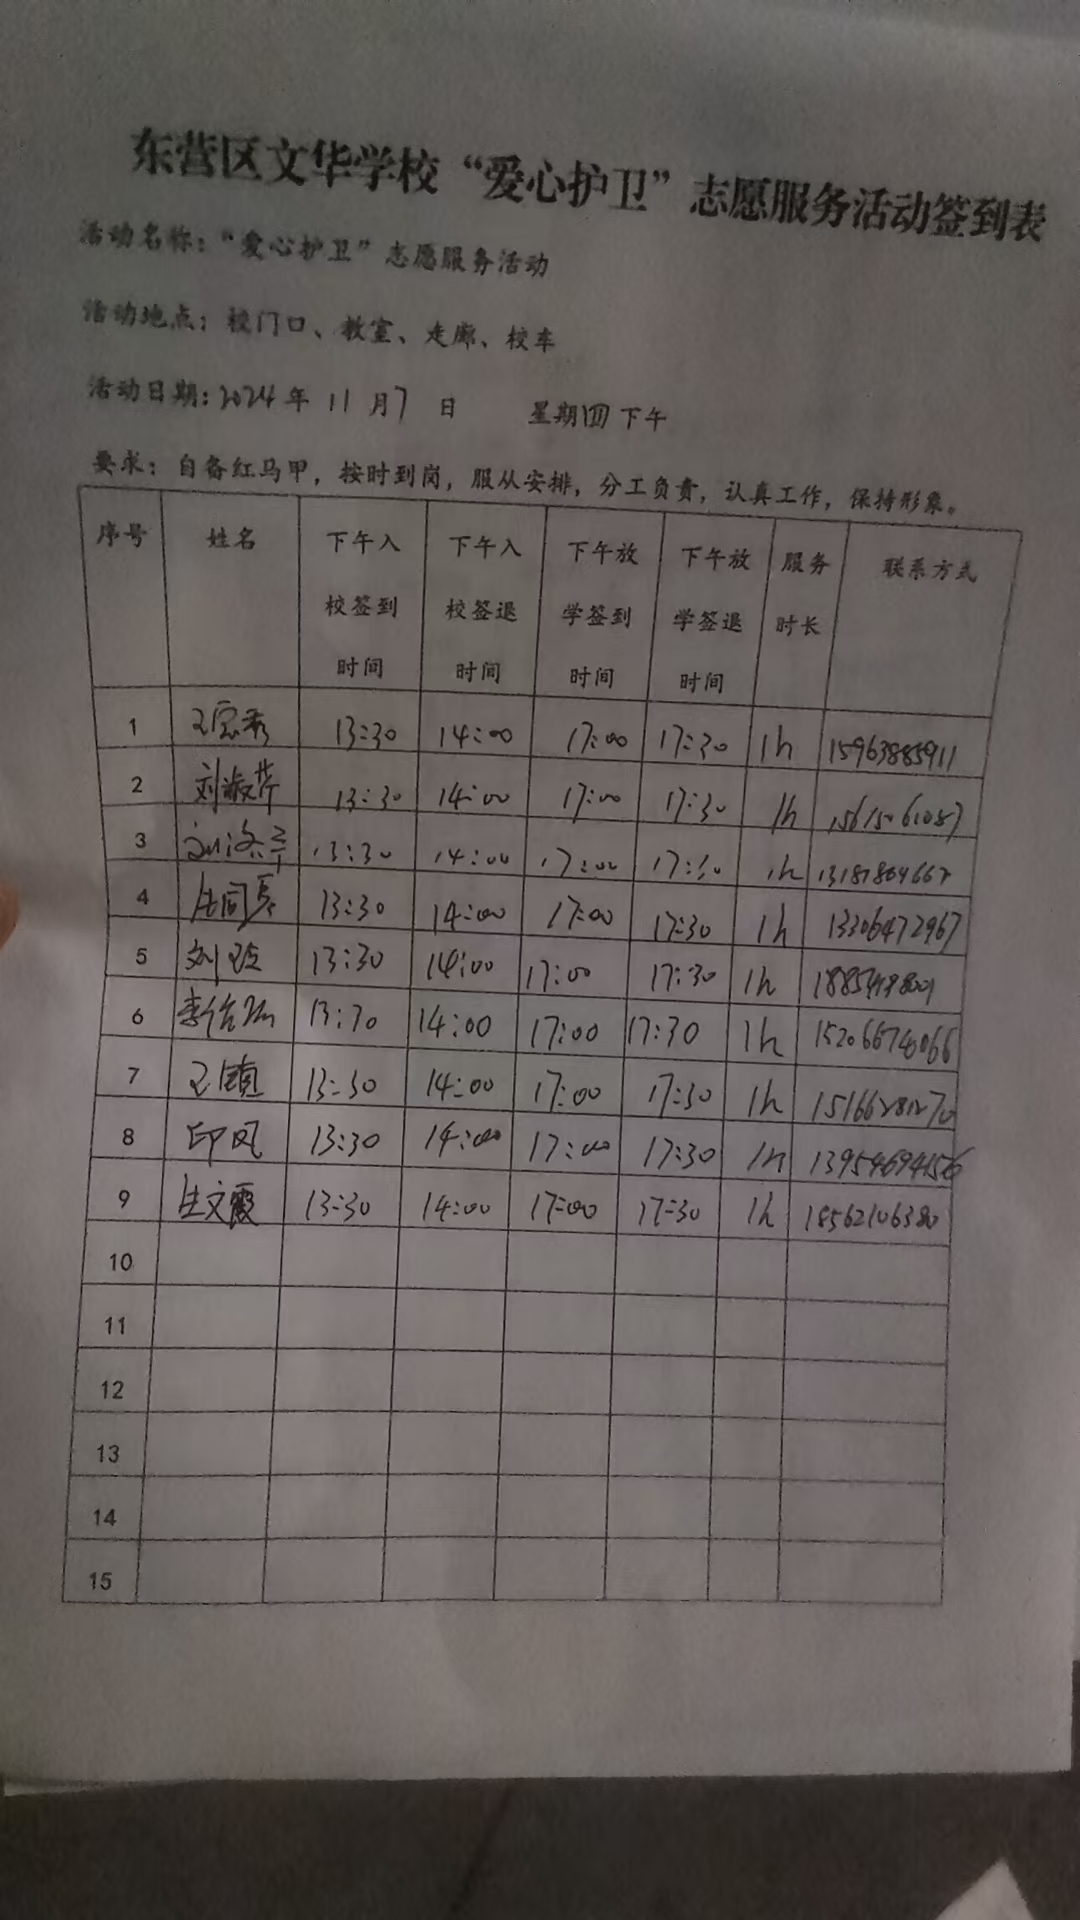 东营区文华学校“爱心护卫”志愿服务活动签到表
活动名称：“爱心护卫”志愿服务活动
活动地点：校门口、教室、走廊、校车
活动日期：2024年 11月7 日 星期四下午
要求：自备红马甲，按时到岗，服从安排，分工负责，认真工作，保持形象。
序号 姓名 下午入校签到时间 下午入校签退时间 下午放学签到时间 下午放学签退时间 服务时长 联系方式
1 13:30 14:00 17:00 17:30 1h 15963885911
2 刘淑芹 13:30 14:00 17:00 17:30 1h
3 13:30 14:00 17:00 17:30 1h
4 13:30 14:00 17:00 17:30 1h 13306472967
5 13:30 14:00 17:00 17:30 1h
6 13:30 14:00 17:00 17:30 1h
7 13:30 14:00 17:00 17:30 1h
8 印凤 13:30 14:00 17:00 17:30 1h
9 13:30 14:00 17:00 17:30 1h 18562106380
10
11
12
13
14
15